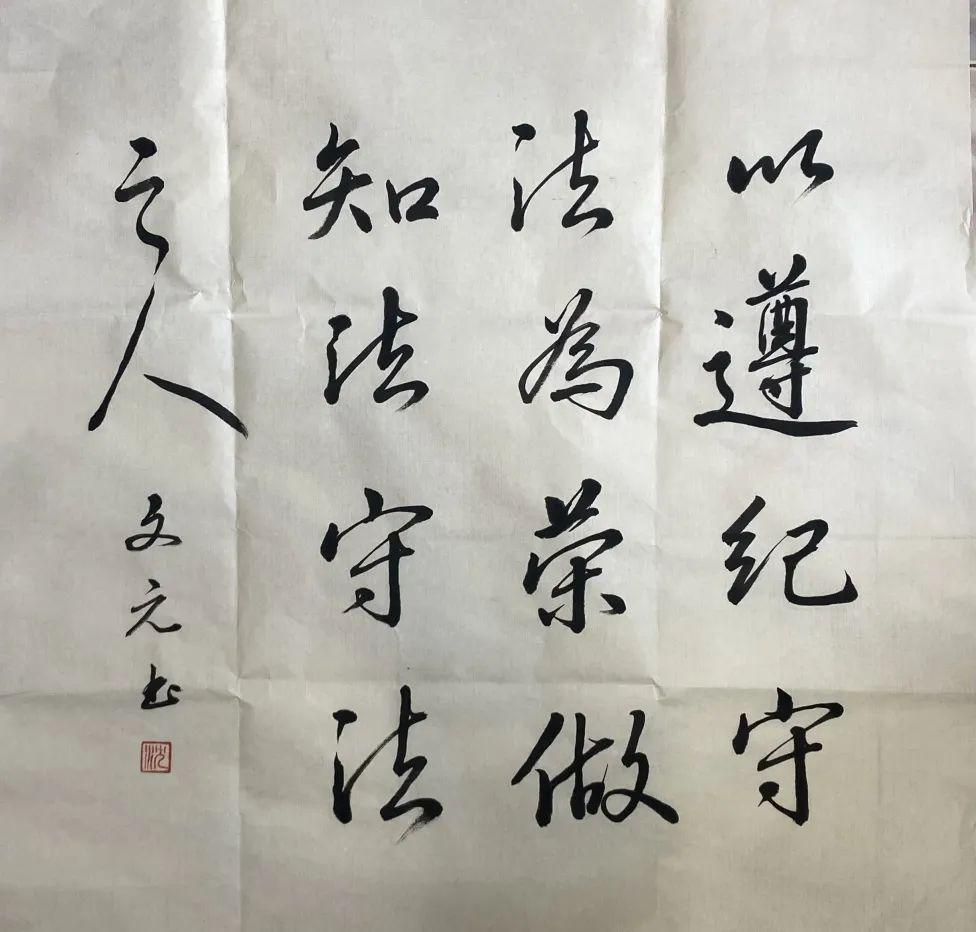 以遵纪守
法為荣做
知法守法
之人
文元书
沈